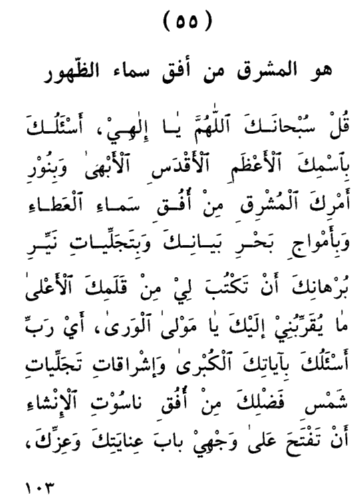 (٥٥)
هو المشرق من أفق سماء الظّهور
قُلْ سُبْحانَـكَ ٱللّٰهُمَّ يٰـا إِلٰهِيْ، أَسْئَلُـكَ
بِٱسْمِكَ ٱلْأَعْظَمِ ٱلْأَقْدَسِ ٱلْأَبْهىٰ وَبِنُوْرِ
أَمْرِكَ ٱلْمُشْرِقِ مِنْ أُفُـقِ سَمـاءِ ٱلْعَطـاءِ
وَبِأَمْواجِ بَحْـرِ بَيـانِـكَ وَبِتَجَلِّيـاتِ نَيِّـرِ
بُرْهانِكَ أَنْ تَكْتُبَ لِيْ مِنْ قَلَمِكَ ٱلْأَعْلىٰ
مٰا يُقَرِّبُنِيْ إِلَيْكَ يٰا مَوْلىٰ ٱلْوَرىٰ، أَيْ رَبِّ
أَسْئَلُكَ بِآياتِكَ ٱلْكُبْرىٰ وَإشْراقاتِ تَجَلِّياتِ
شَمْسِ فَضْلِكَ مِنْ أُفُقِ ناسُوْتِ ٱلْإِنْشاءِ
أَنْ تَفْتَحَ عَلىٰ وَجْهِيْ بابَ عِنايَتِكَ وَعِزِّكَ،
١٠٣